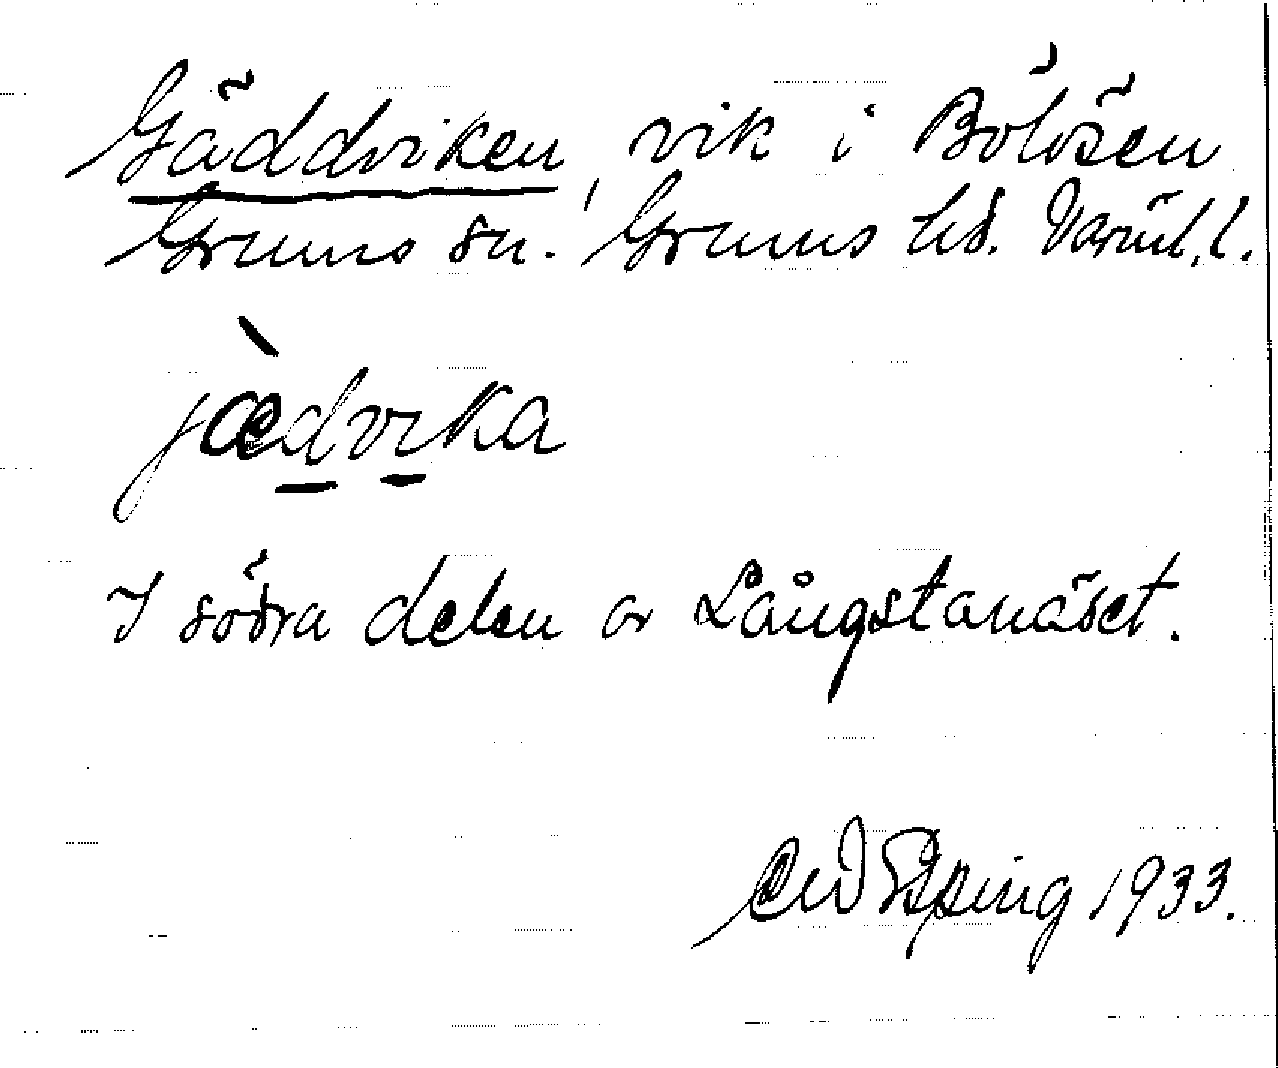 Gäddviken, vik i Bölösen
Grums sn. Grums hd. Värml. l.
jædvika
I södra delen av Långstanäset.
Epping 1933.